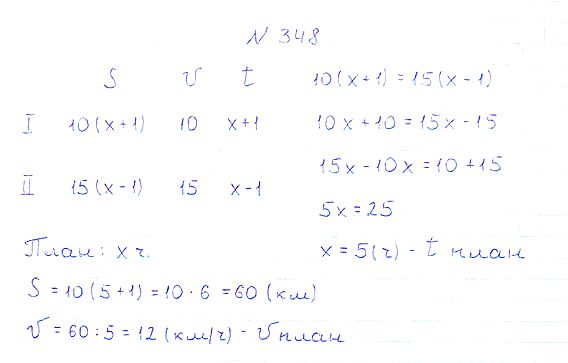 N 348
S v t 10(x+1) = 15(x-1)
I 10(x+1) 10 x+1 10x+10=15x-15
15x-10x=10+15
II 15(x-1) 15 x-1
5x=25
План: x ч. x = 5(ч) - t план
S = 10(5+1)=10·6 =60 (км)
v = 60:5=12 (км/ч) - v план